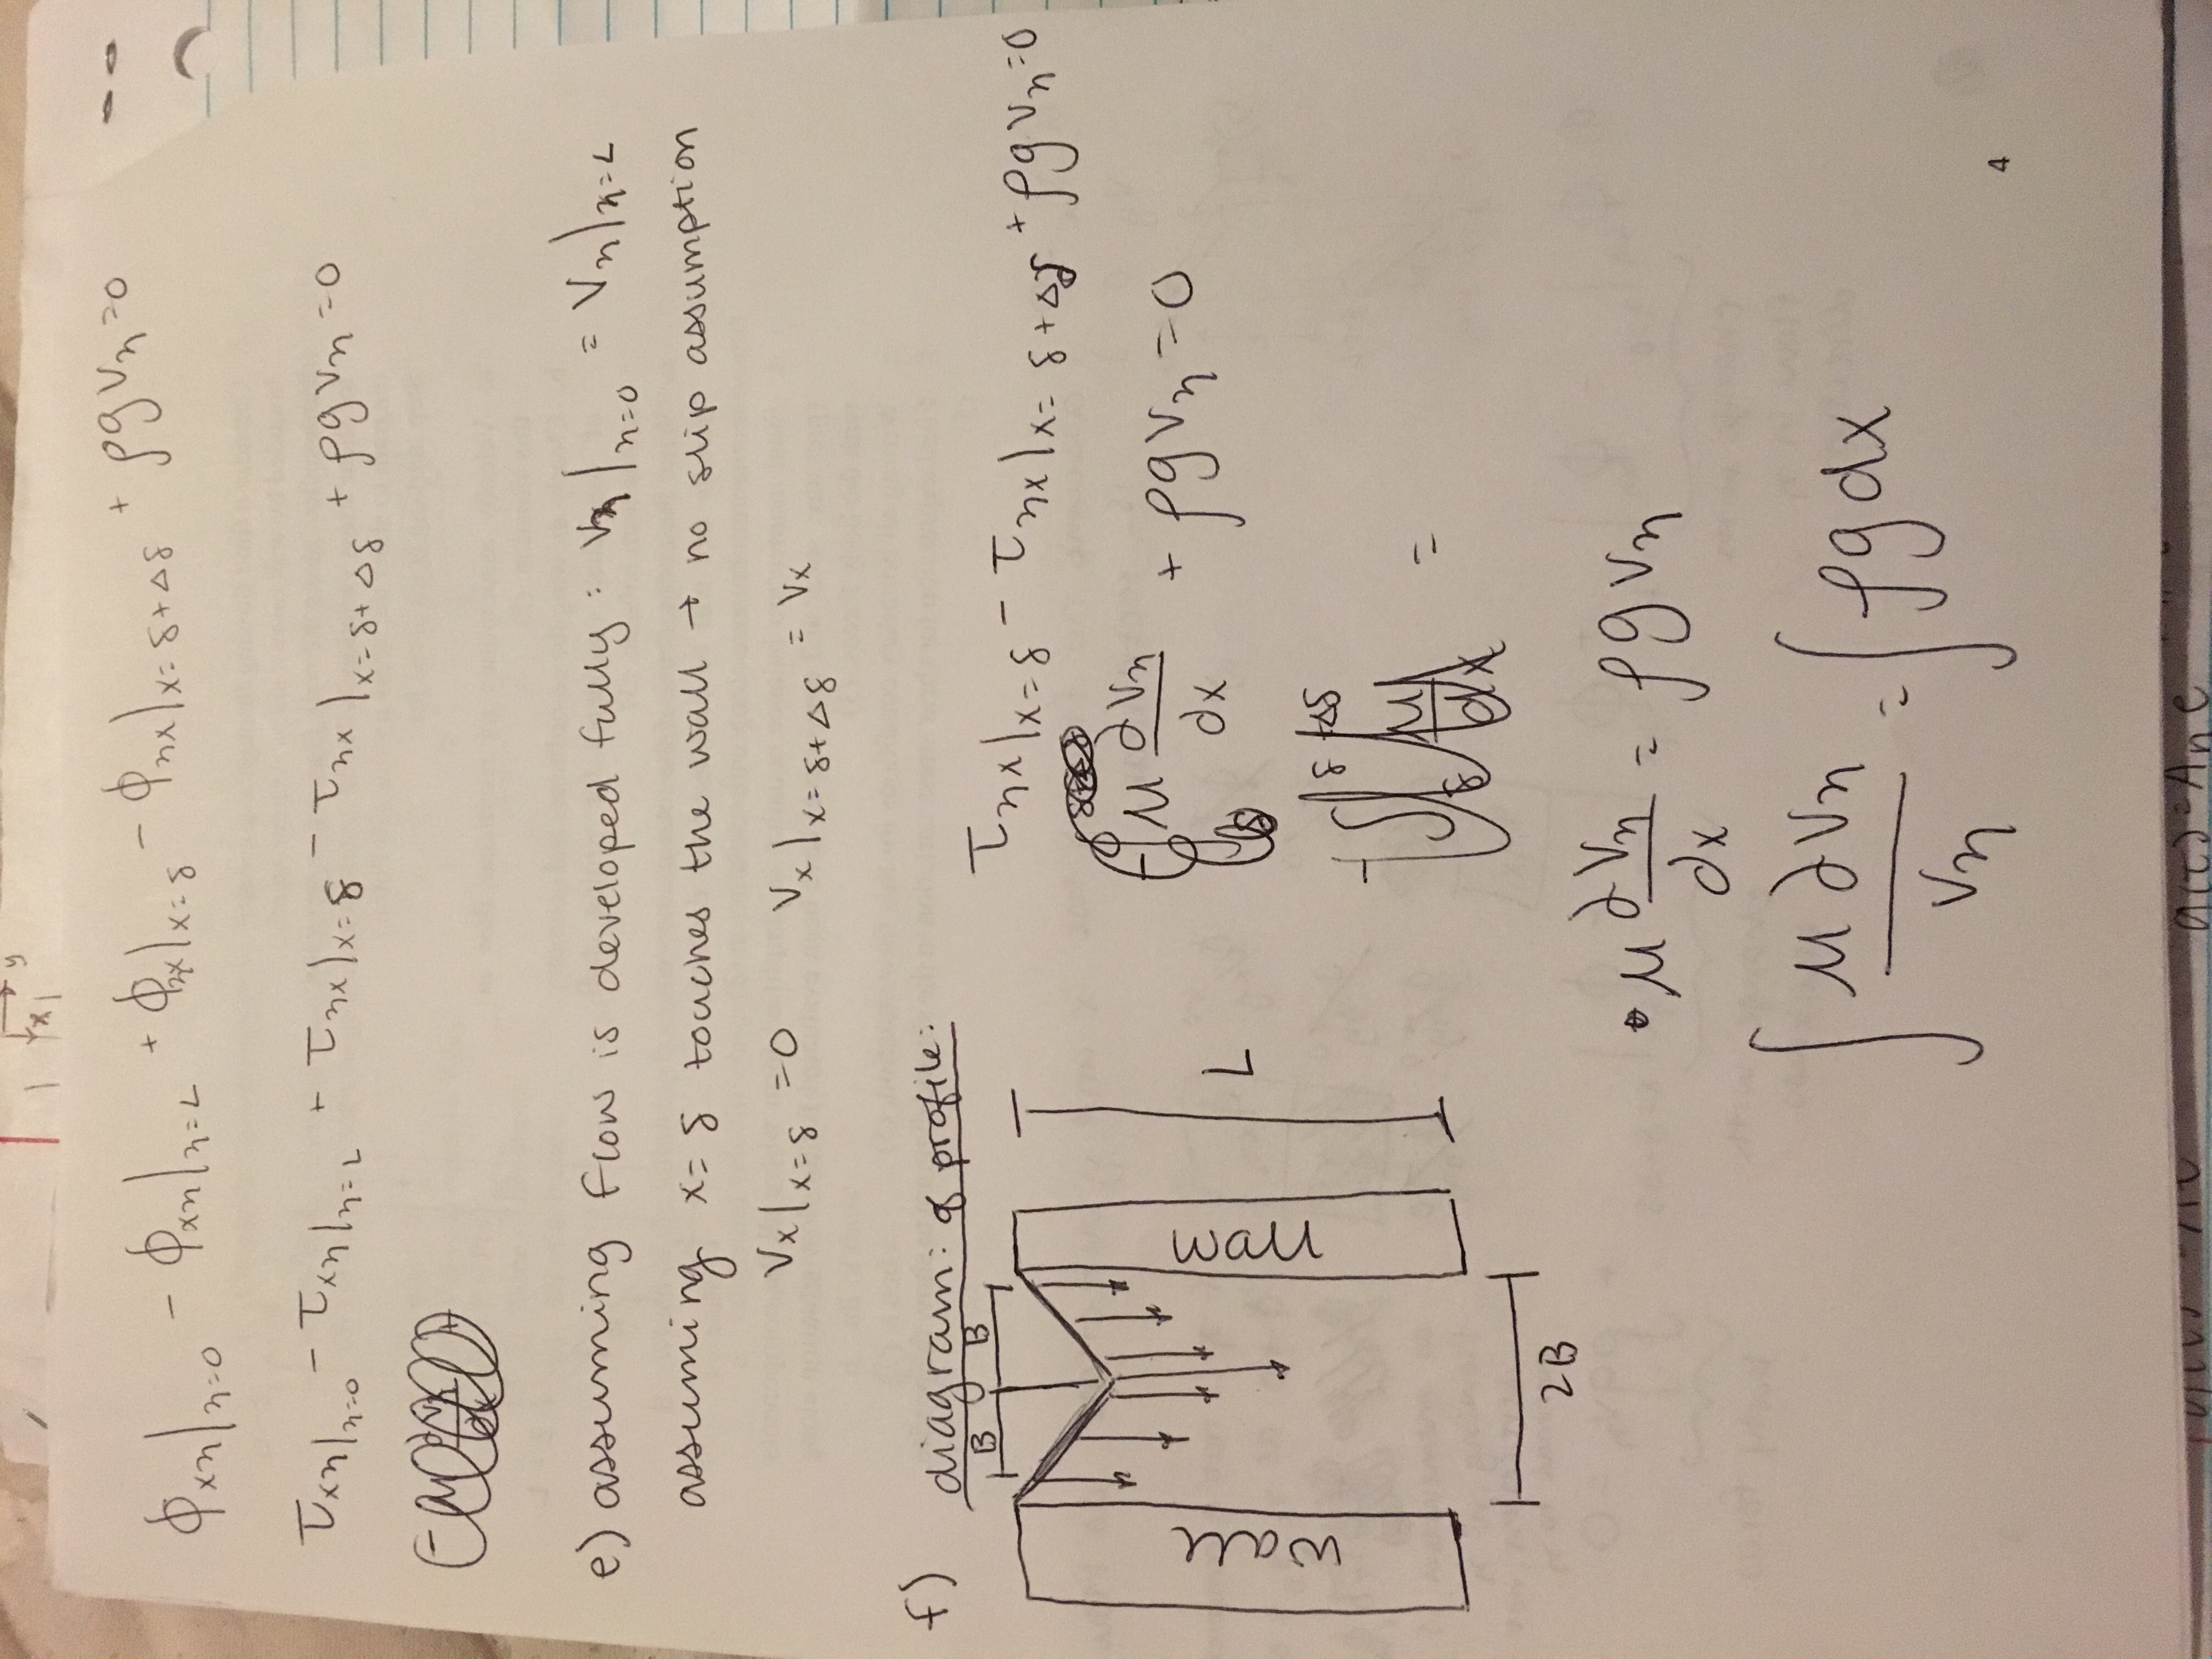 y
x
ϕxη|η=0 − ϕxη|η=L + ϕηx|x=δ − ϕηx|x=δ+Δδ + ρgVη=0
τxη|η=0 − τxη|η=L + τηx|x=δ − τηx|x=δ+Δδ + ρgVη=0
e) assuming flow is developed fully: Vη|η=0 = Vη|η=L
assuming x=δ touches the wall → no slip assumption
Vx|x=δ =0 Vx|x=δ+Δδ = Vx
f) diagram: of profile:
B B
wall
wall
L
2B
τηx|x=δ − τηx|x=δ+Δδ + ρgVη=0
−μ ∂Vη/∂x + ρgVη=0
=
μ ∂Vη/∂x = ρgVη
∫ μ∂Vη/Vη = ∫ ρg dx
4